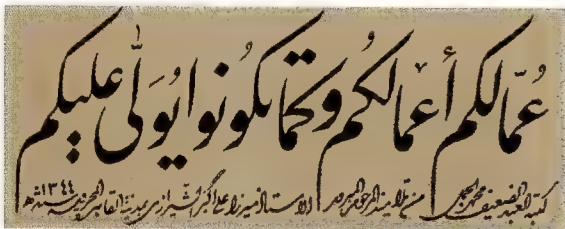 عُمّالكم أعمالكُم وكما تكُونُوا يُوَلّى عليكم
كتبه العبد الضعيف محمد من تلاميذ المرحوم الاستاذ ميرزا علي أكبر الشيرازي بمدينة القاهرة سنة ١٣٤٤ه